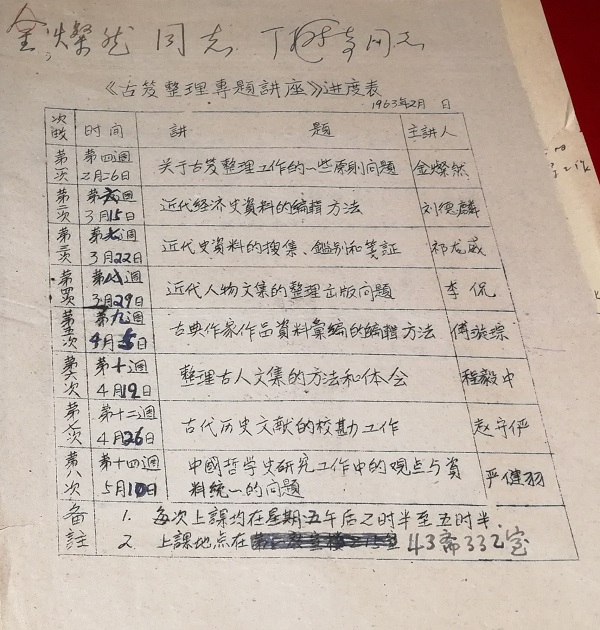 金灿然同志
《古笈整理專題講座》进度表
1963年2月 日
次数 时间 講題 主讲人
第一次 第四週 2月26日 关于古笈整理工作的一些原則问題 金燦然
第二次 第六週 3月15日 近代经济史資料的编輯方法 刘德麟
第三次 第七週 3月22日 近代史資料的搜集、鑑别和笺証 祁龙威
第四次 第八週 3月29日 近代人物文集的整理出版问題 李侃
第五次 第九週 4月5日 古典作家作品資料彙编的编輯方法 傅璇琮
第六次 第十週 4月19日 整理古人文集的方法和体会 程毅中
第七次 第十二週 4月26日 古代历史文献的校勘工作 赵守俨
第八次 第十四週 5月10日 中國哲学史研究工作中的观点与資料統一的问題 严健羽
备註 1. 每次上課均在星期五午后2时半至五时半.
2. 上課地点在 43斋332室